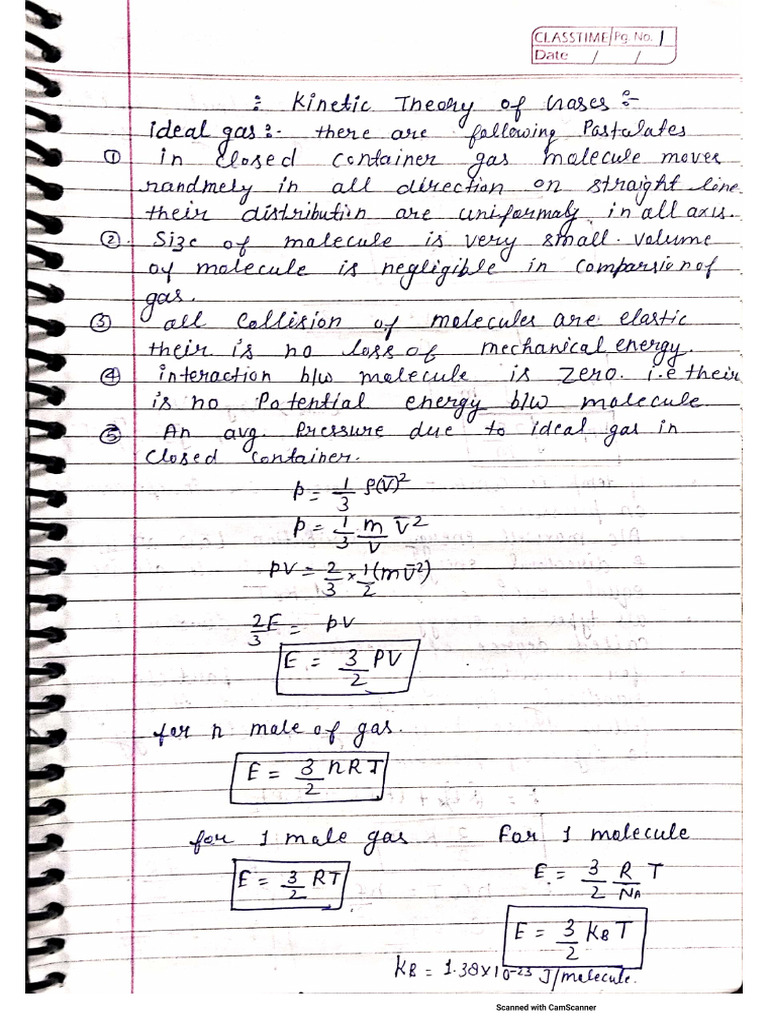 CLASSTIME Pg. No. 1
Date / /
: Kinetic Theory of Gases :-
ideal gas :- there are following Postulates
① in closed container gas molecule moves
randmely in all direction on straight line
their distribution are uniformaly in all axis.
②. Size of molecule is very small. volume
of molecule is negligible in comparsion of
gas.
③ all collision of molecules are elastic
their is no loss of mechanical energy.
④ interaction b/w molecule is zero. i.e their
is no Potential energy b/w molecule
⑤ An avg. Pressure due to ideal gas in
closed container.
P = 1/3 ρ(v̄)²
P = 1/3 m/V v̄²
PV = 2/3 × 1/2 (mv̄²)
2/3 E = PV
E = 3/2 PV
for n mole of gas.
E = 3/2 nRT
for 1 mole gas For 1 molecule
E = 3/2 RT E = 3/2 R/NA T
E = 3/2 KB T
KB = 1.38×10⁻²³ J/molecule.
Scanned with CamScanner